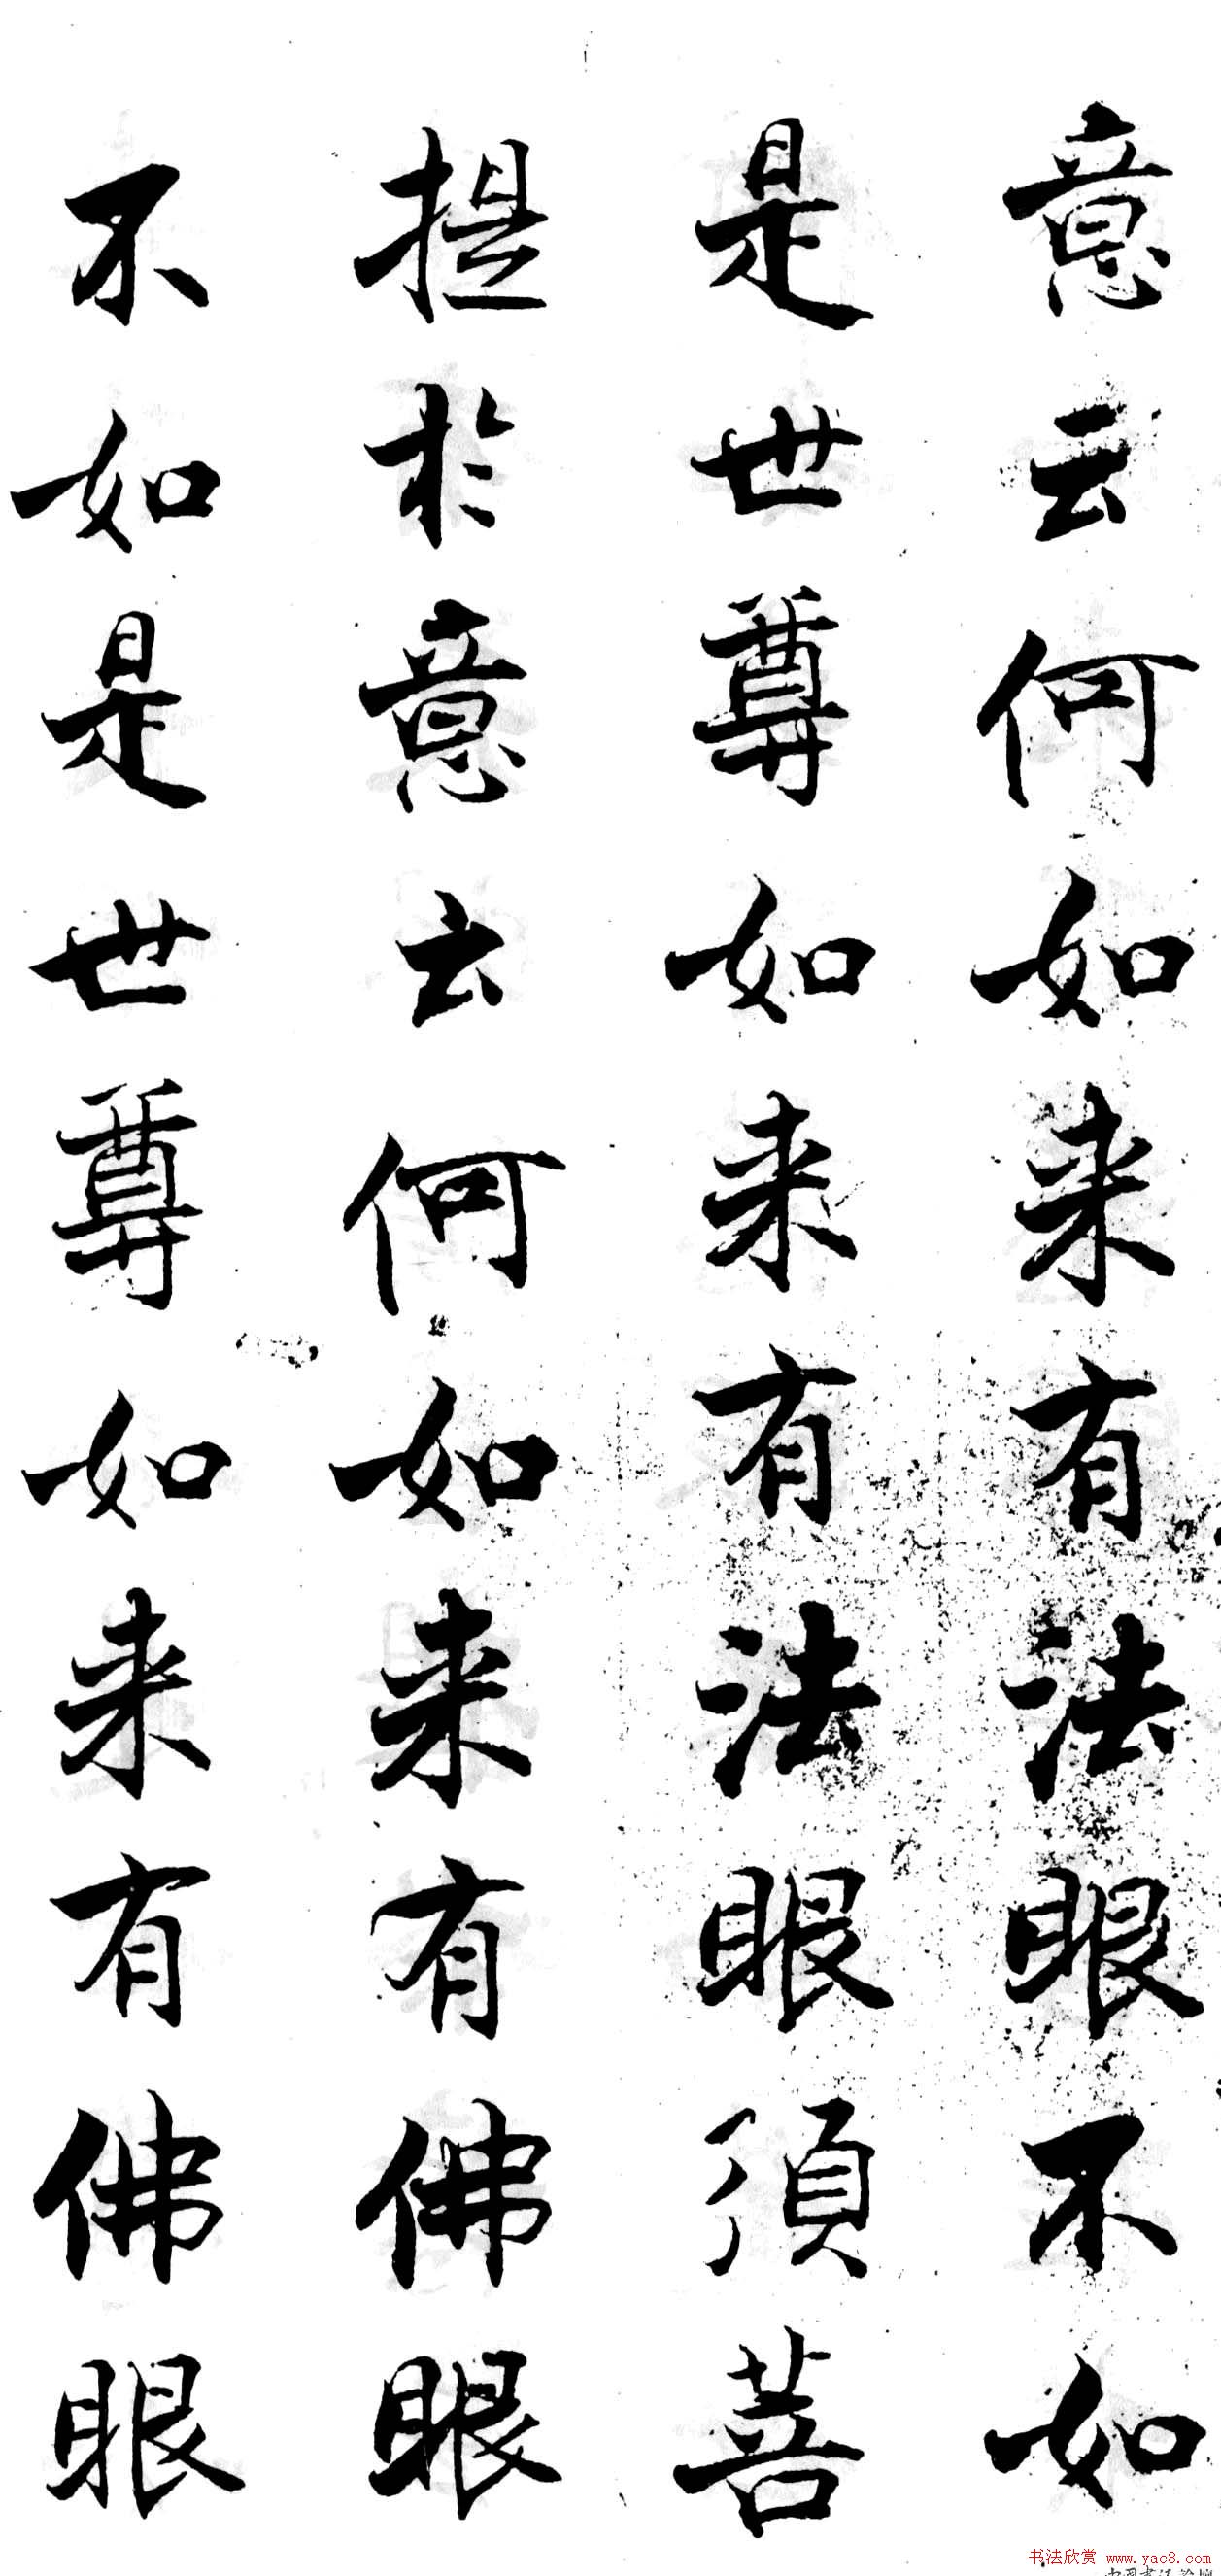 意云何如来有法眼不如
是世尊如来有法眼須菩
提於意云何如来有佛眼
不如是世尊如来有佛眼
书法欣赏 www.yac8.com